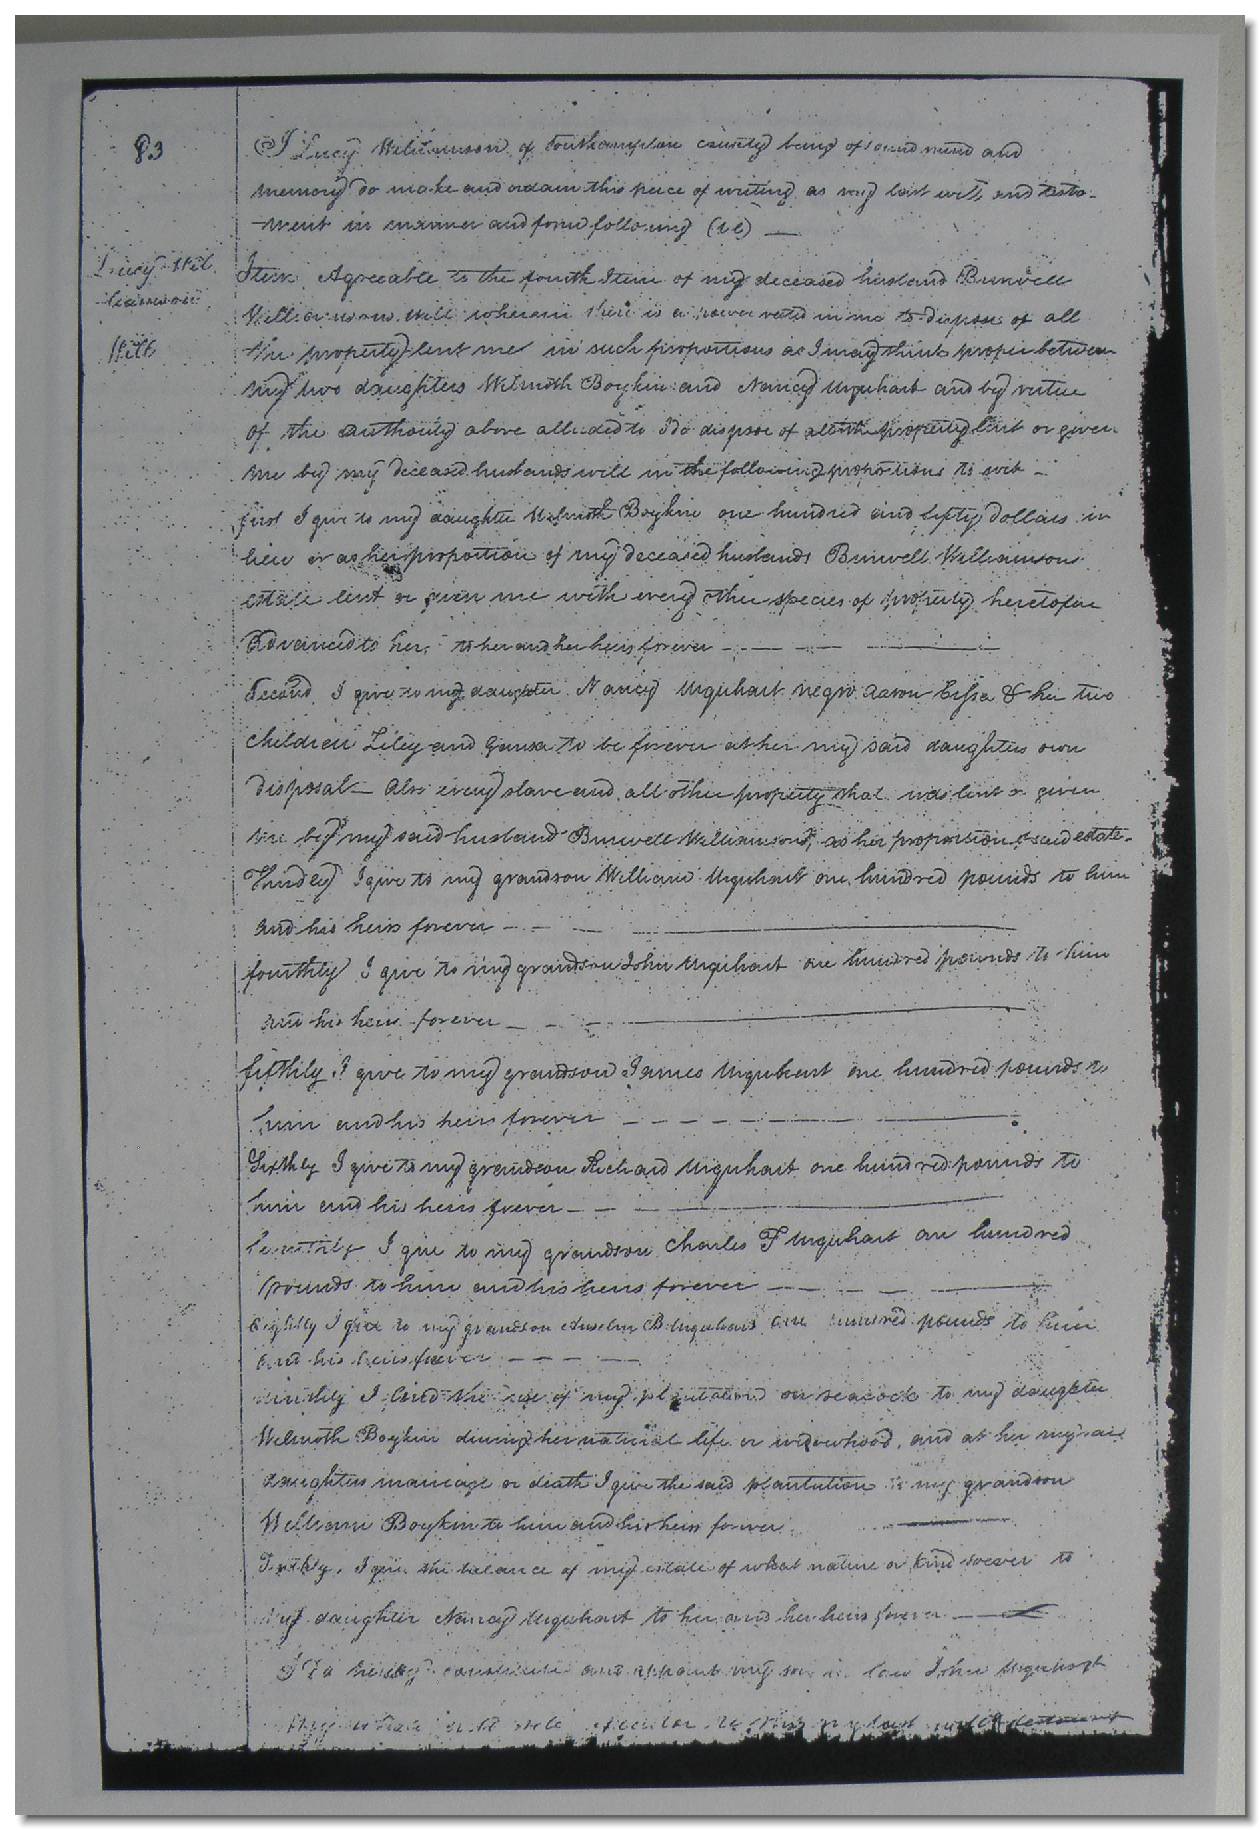 83
I Lucy Williamson of Southampton county being of sound mind and
memory do make and ordain this peice of writing as my last will and testa-
-ment in manner and form following (Vi)
Lucy Wil
liamson
Will
Item Agreeable to the fourth Item of my deceased husband Burwell
Williamsons will wherein there is a power vested in me to dispose of all
the property lent me in such proportions as I may think proper between
my two daughters Wilmoth Boykin and Nancy Urquhart and by virtue
of the authority above alluded to I do dispose of all the property lent or given
me by my deceased husbands will in the following proportions to wit -
first I give to my daughter Wilmoth Boykin one hundred and fifty dollars in
lieu or as her proportion of my deceased husbands Burwell Williamsons
estate lent or given me with every other species of property heretofore
Advanced to her, to her and her heirs forever
Second I give to my daughter Nancy Urquhart negro Aaron & her two
children Liley and to be forever at her my said daughters own
disposal - Also every slave and all other property that was lent or given
me by my said husband Burwell Williamson, as her proportion of said estate -
Thirdly I give to my grandson William Urquhart one hundred pounds to him
and his heirs forever
fourthly I give to my grandson John Urquhart one hundred pounds to him
and his heirs forever
fifthly I give to my grandson James Urquhart one hundred pounds to
him and his heirs forever
Sixthly I give to my grandson Richard Urquhart one hundred pounds to
him and his heirs forever
Seventhly I give to my grandson Charles F Urquhart one hundred
pounds to him and his heirs forever
Eightly I give to my grandson Anselm B Urquhart one hundred pounds to him
and his heirs forever
Ninthly I lend the use of my plantation on seacock to my daughter
Wilmoth Boykin during her natural life or widowhood, and at her my said
daughters marriage or death I give the said plantation to my grandson
William Boykin to him and his heirs forever
Tenthly, I give the balance of my estate of what nature or kind soever to
my daughter Nancy Urquhart to her and her heirs forever
I do hereby constitute and appoint my son in law John Urquhart
my whole and sole executor to this my last will & testament